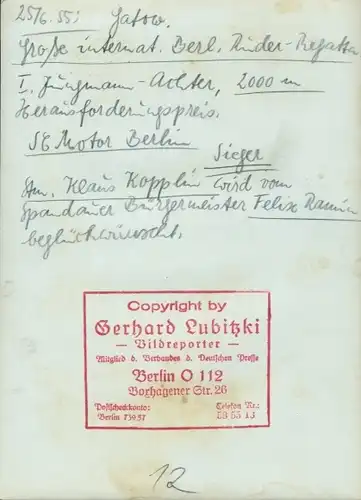 25/6. 55: Gatow.
Große internat. Berl. Ruder-Regatta
I. Jungmann-Achter, 2000 m
Herausforderungspreis.
SG Motor Berlin
Sieger
Klaus Kopplin wird vom
Spandauer Bürgermeister Felix
beglückwünscht.
Copyright by
Gerhard Lubitzki
— Bildreporter —
Mitglied d. Verbandes d. Deutschen Presse
Berlin O 112
Boxhagener Str. 26
Postscheckkonto: Telefon Nr.:
Berlin 73957 58 55 13
12